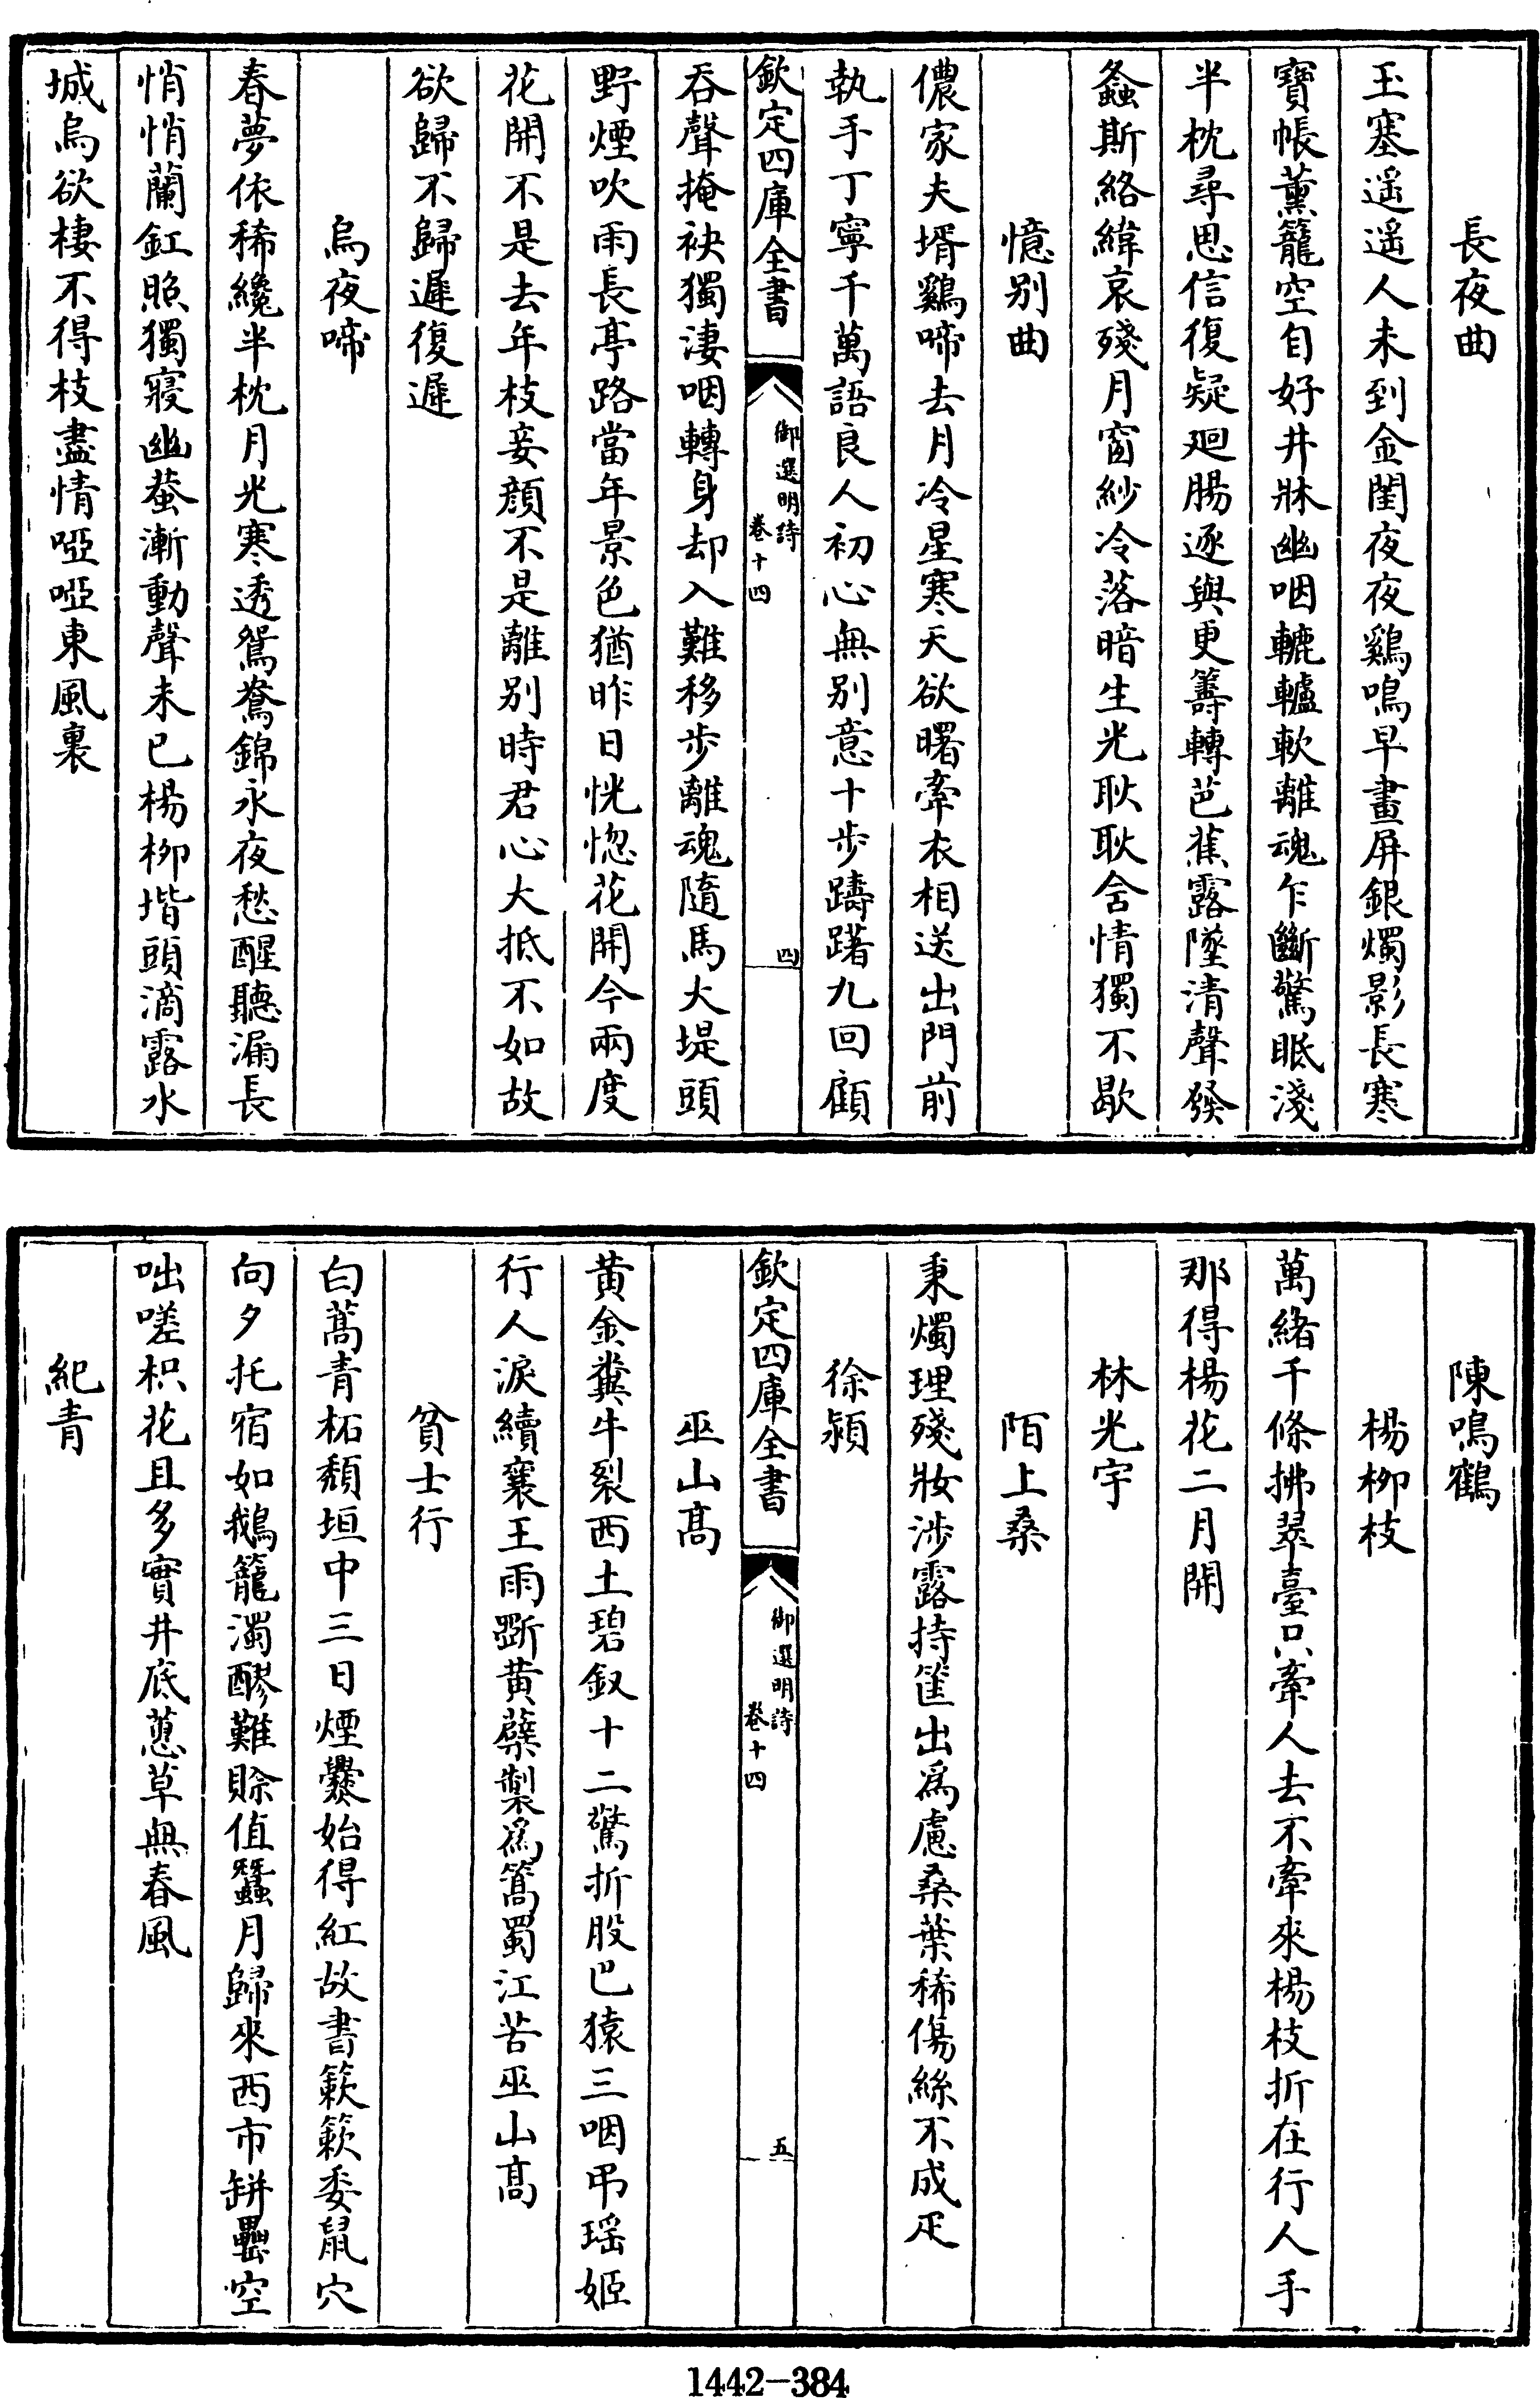 長夜曲
玉塞遥遥人未到金閨夜夜鷄鳴早畫屏銀燭影長寒
寶帳薰籠空自好井牀幽咽轆轤軟離魂乍斷驚眠淺
半枕尋思信復疑廻腸逐與更籌轉芭蕉露墜清聲發
螽斯絡緯哀殘月窗紗冷落暗生光耿耿舍情獨不歇
憶别曲
儂家夫壻鷄啼去月冷星寒天欲曙牽衣相送出門前
執手丁寧千萬語良人初心無别意十步躊躇九回顧
欽定四庫全書
御選明詩
卷十四
四
吞聲掩袂獨淒咽轉身却入難移步離魂隨馬大堤頭
野煙吹雨長亭路當年景色猶昨日恍惚花開今兩度
花開不是去年枝妾顔不是離别時君心大抵不如故
欲歸不歸遲復遲
烏夜啼
春夢依稀纔半枕月光寒透鴛鴦錦永夜愁醒聽漏長
悄悄蘭釭照獨寢幽蛩漸動聲未已楊柳堦頭滴露水
城烏欲棲不得枝盡情啞啞東風裏
陳鳴鶴
楊柳枝
萬緒千條拂翠臺只牽人去不牽來楊枝折在行人手
那得楊花二月開
林光宇
陌上桑
秉燭理殘妝涉露持筐出爲慮桑葉稀傷絲不成疋
徐熥
欽定四庫全書
御選明詩
卷十四
五
巫山髙
黄金糞牛裂西土碧釵十二驚折股巴猿三咽弔瑶姬
行人淚續襄王雨斵黄蘗製為篙蜀江苦巫山髙
貧士行
白蒿青柘頽垣中三日煙爨始得紅故書簌簌委鼠穴
向夕托宿如鵝籠濁醪難賒值蠶月歸來西市缾罍空
咄嗟枳花且多實井底蒠草無春風
紀青
1442-384